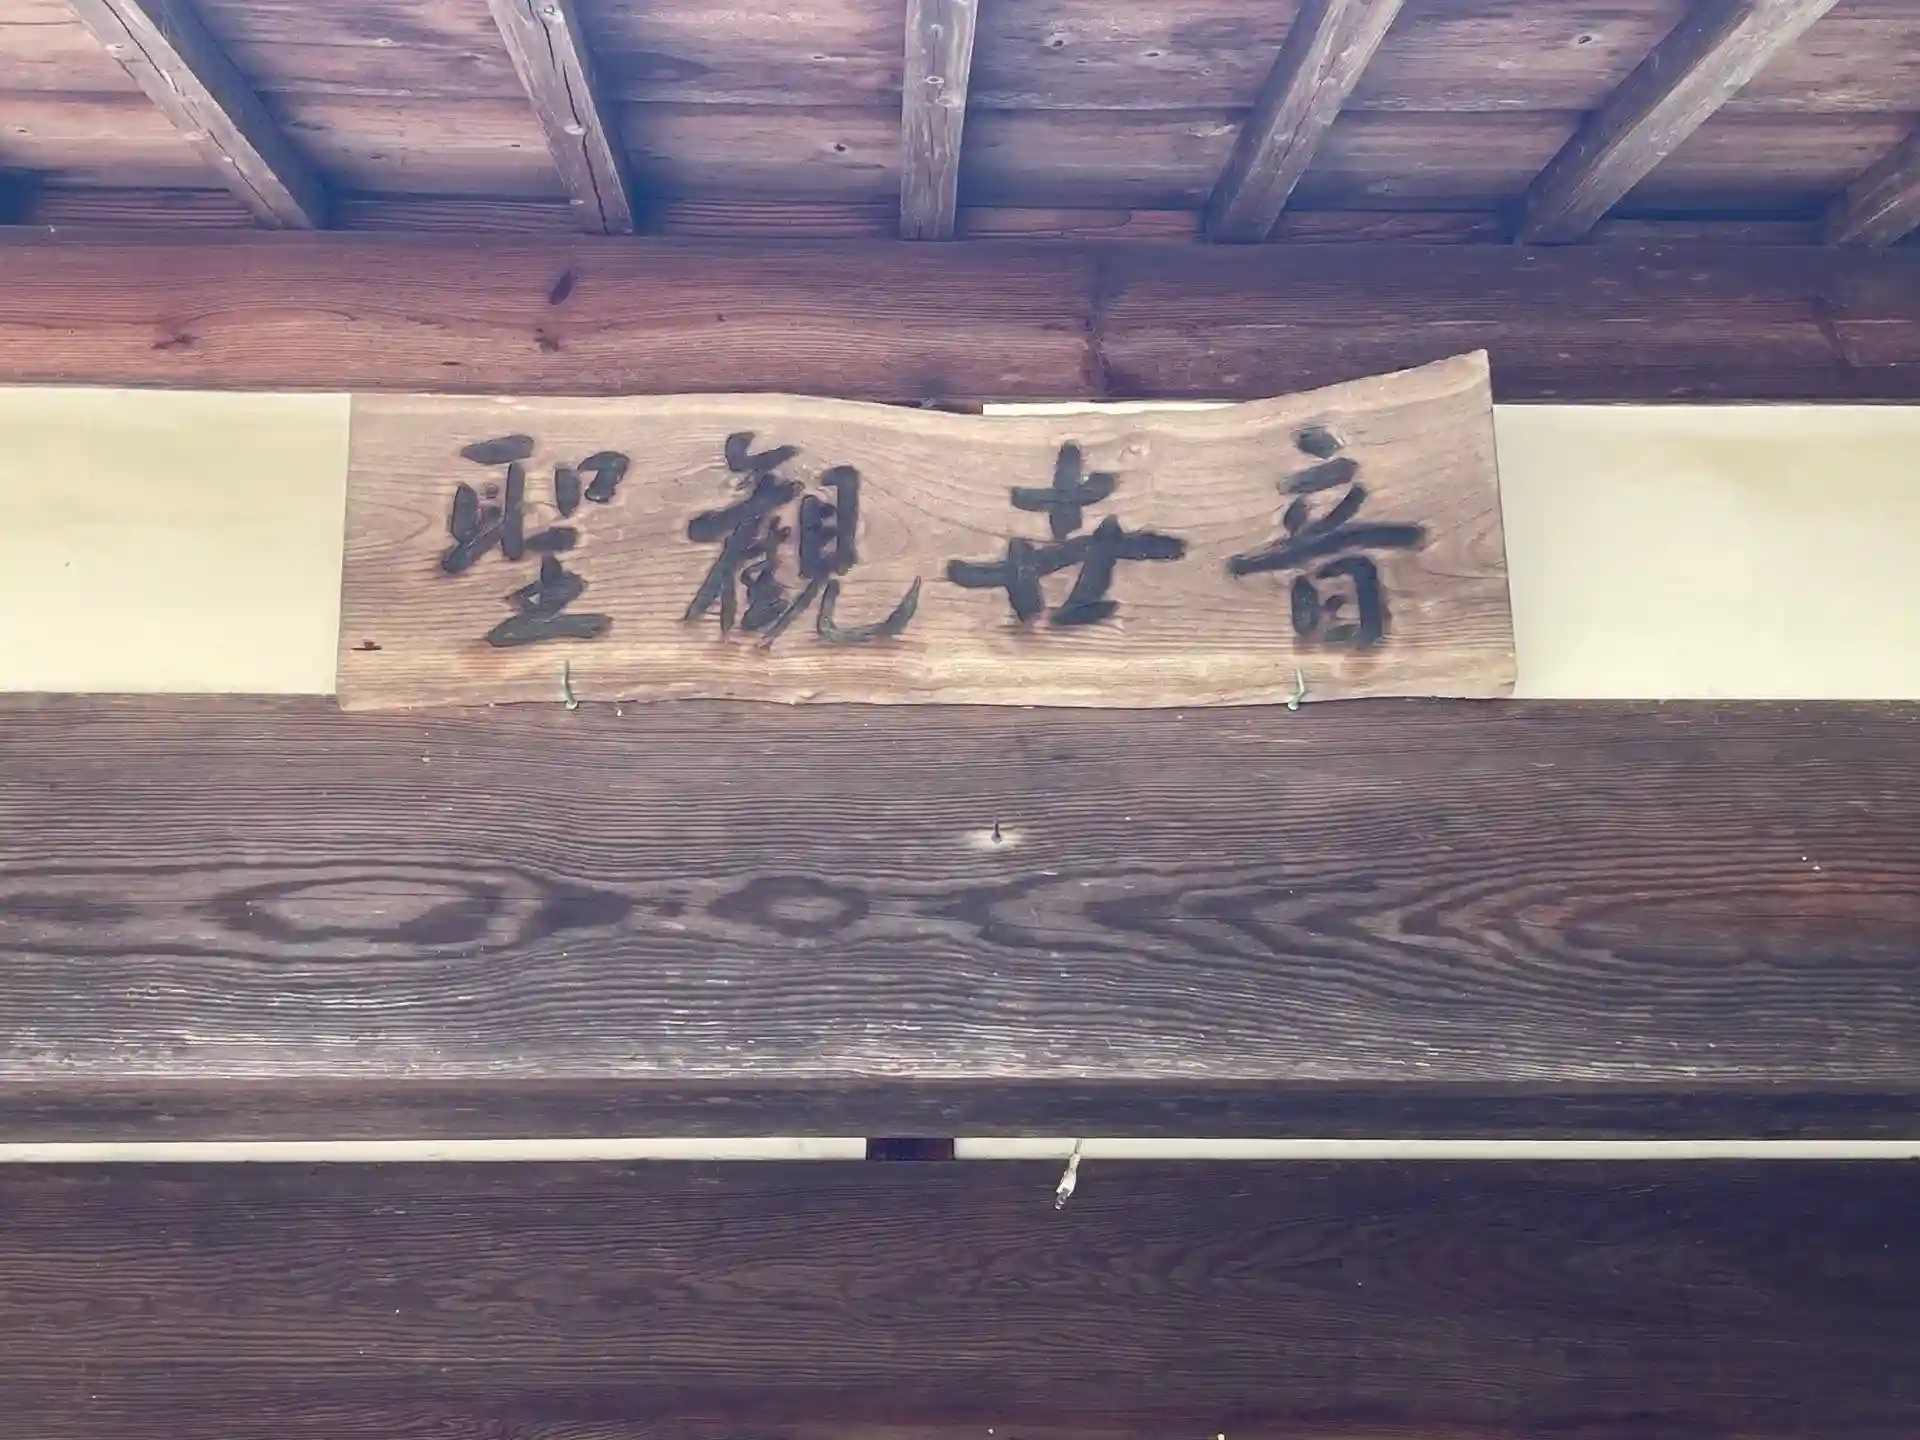 聖観世音